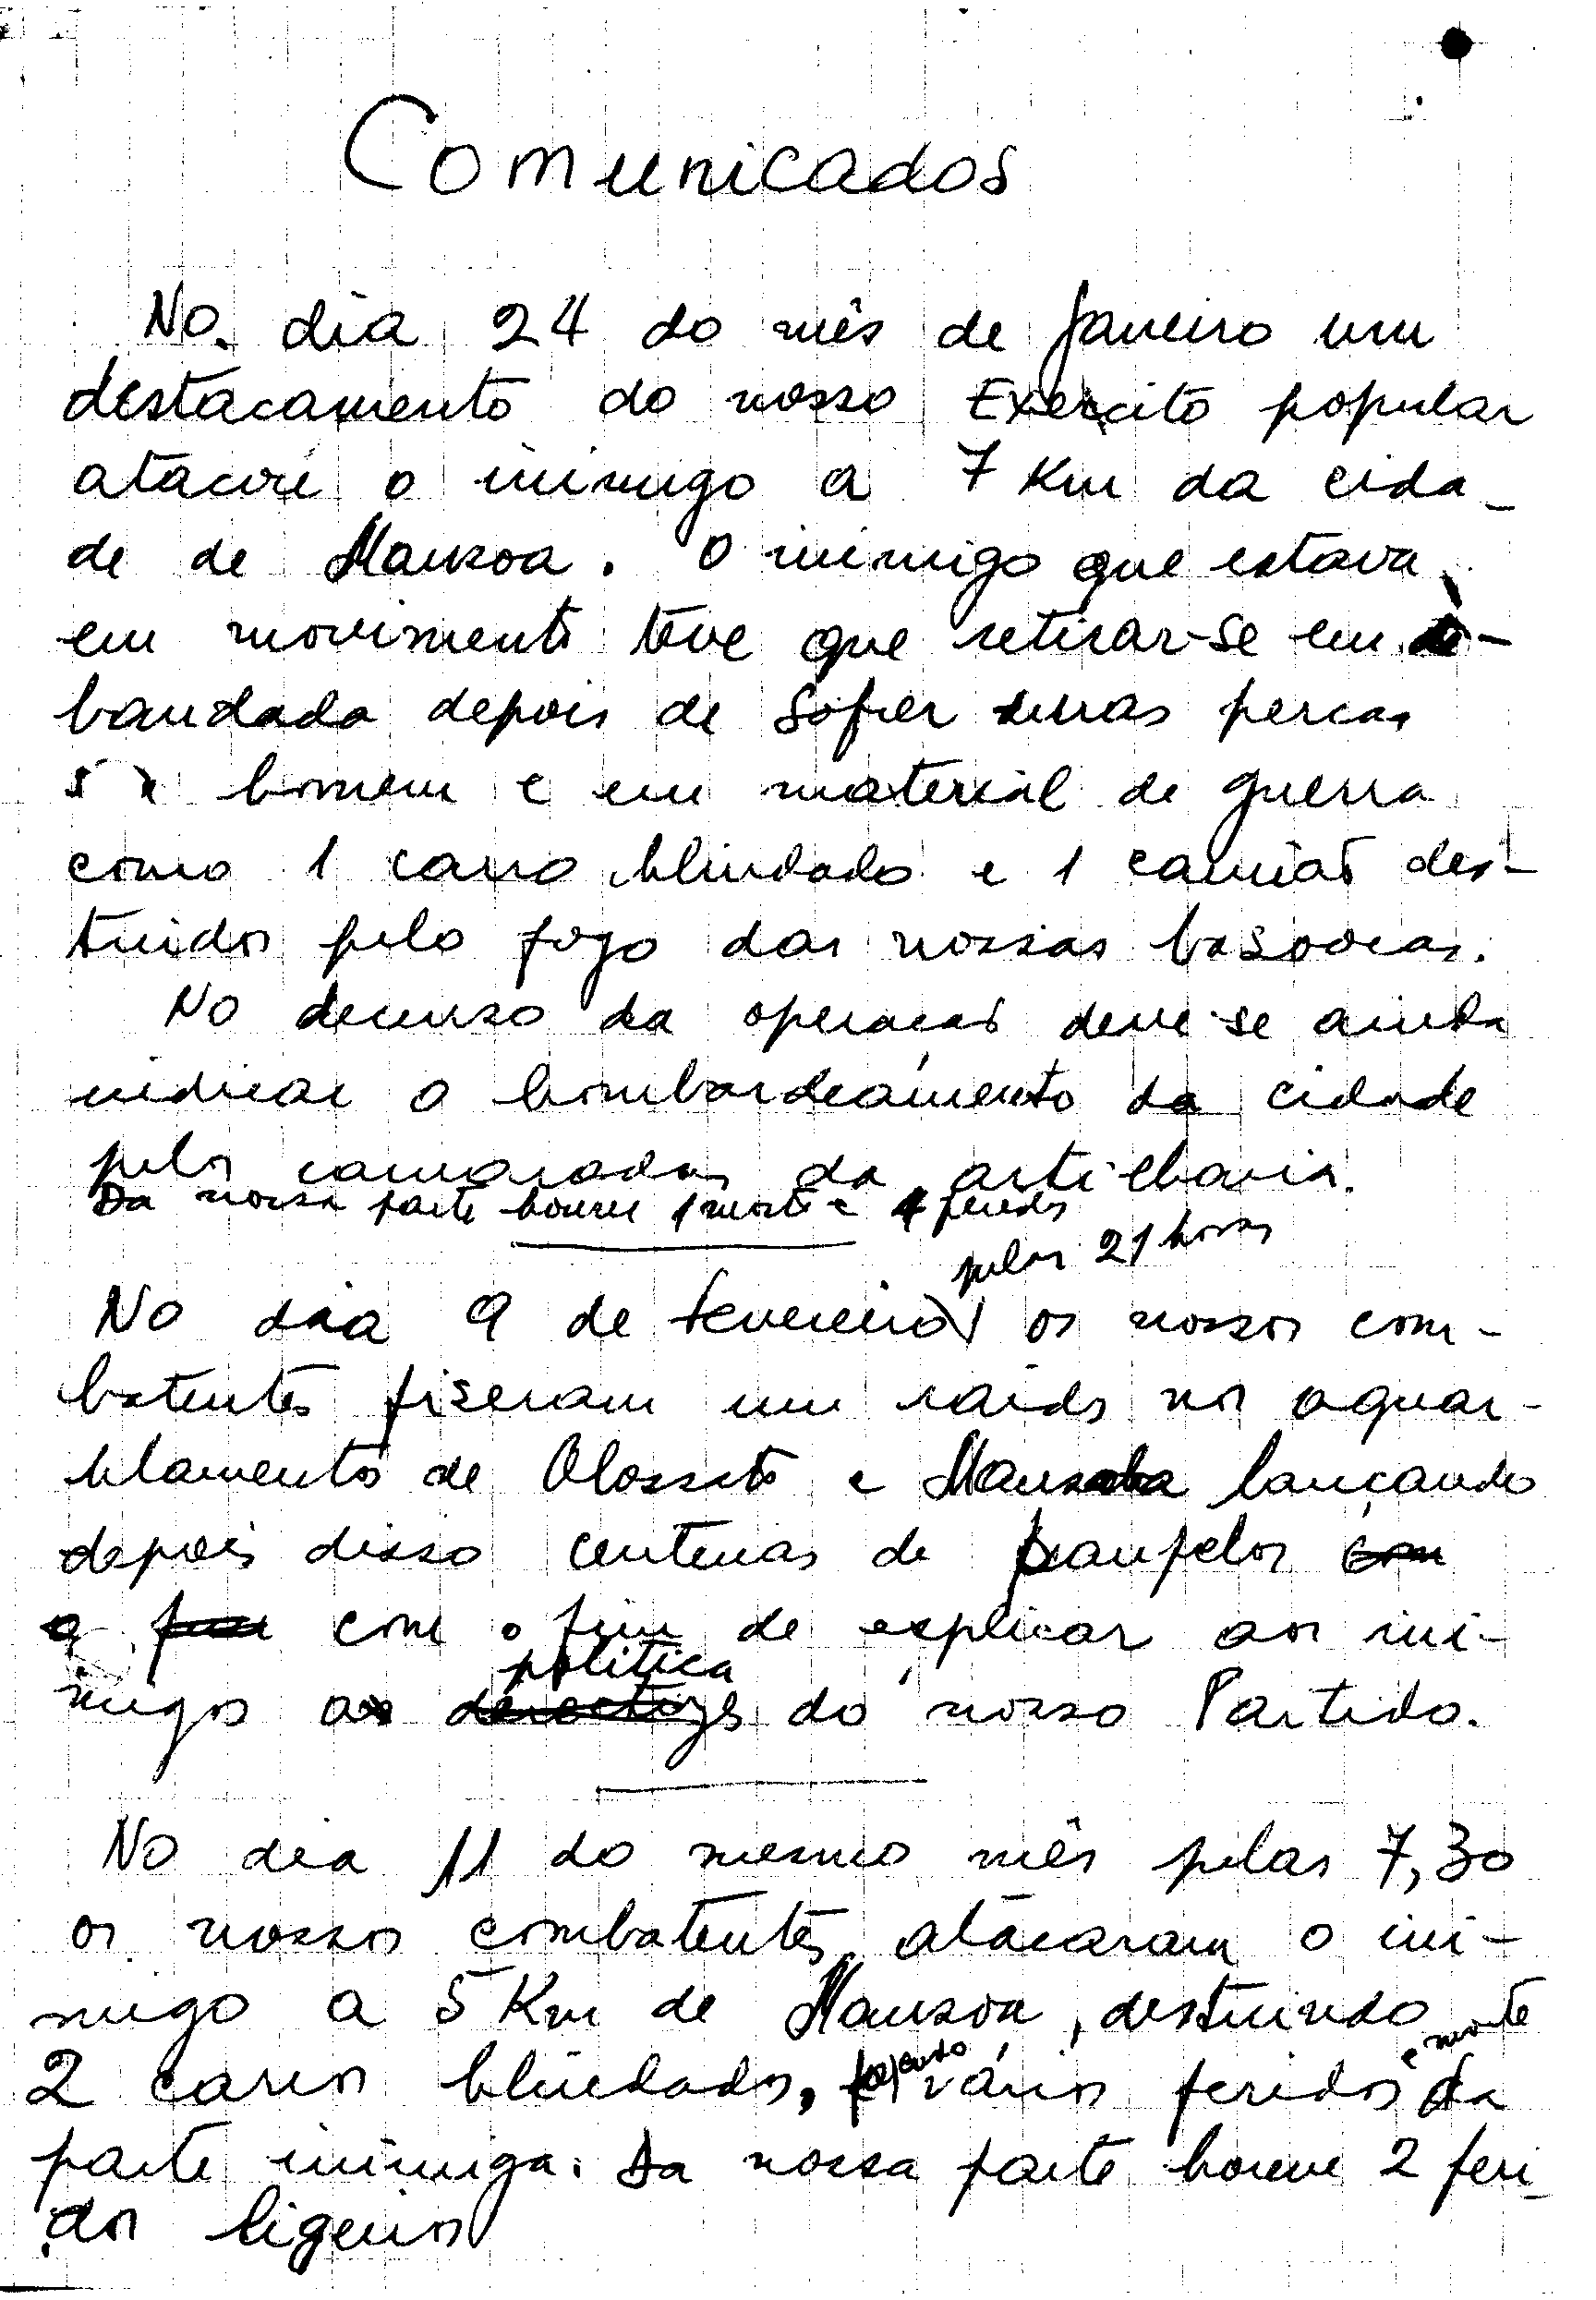 Comunicados
No dia 24 do mês de Janeiro um
destacamento do nosso Exercito popular
atacou o inimigo a 7 Km da cida-
de de Mansoa. O inimigo que estava
em movimento teve que retirar-se em de-
bandada depois de sofrer duras percas
homem e em material de guerra
como 1 carro blindado e 1 camião des-
truidos pelo fogo das nossas basoocas.
No decurso da operação deve-se ainda
indicar o bombardeamento da cidade
pelos camaradas da artilharia.
Da nossa parte houve 1 morto e 4 feridos
pelas 21 horas
No dia 9 de fevereiro os nossos com-
batentes fiseram um raids nos aquar-
tlamento de Olossato e Mansaba lançando
depois disso centenas de panfelos com
o fim com o fim de explicar aos ini-
politica
migos a do nosso Partido.
No dia 11 do mesmo mês pelas 7,30
os nossos combatentes atacaram o ini-
migo a 5 Km de Mansoa, destruindo
e morte
2 carros blindados, fazendo vários feridos da
parte inimiga. Da nossa parte houve 2 feri-
dos ligeiros